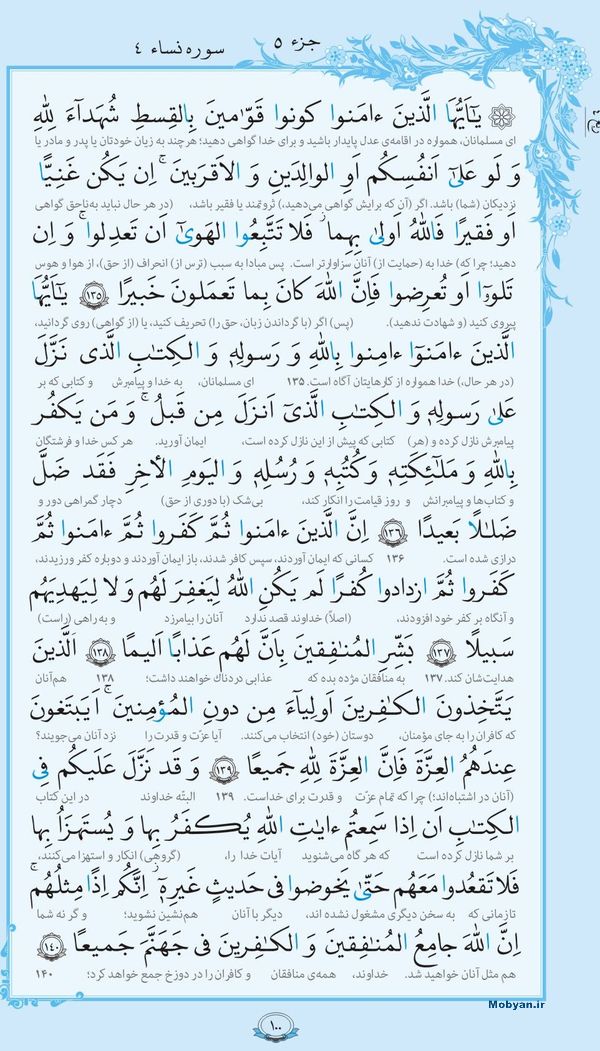 جزء ۵
سوره نساء ۴
يٰٓاَيُّهَا الَّذينَ ءامَنوا كونوا قَوّٰمينَ بِالقِسطِ شُهَدآءَ لِلّٰهِ
ای مسلمانان، همواره در اقامه‌ی عدل پایدار باشید و برای خدا گواهی دهید؛ هرچند به زیان خودتان یا پدر و مادر یا
وَ لَو عَلىٰٓ اَنفُسِكُم اَوِ الوالِدَينِ وَ الاَقرَبينَ ۚ اِن يَكُن غَنِيًّا
نزدیکان (شما) باشد. اگر (آن که برایش گواهی می‌دهید،) ثروتمند یا فقیر باشد، (در هر حال نباید به‌ناحق گواهی
اَو فَقيرًا فَاللّٰهُ اَولىٰ بِهِما ۖ فَلا تَتَّبِعُوا الهَوىٰٓ اَن تَعدِلوا ۚ وَ اِن
دهید؛ چرا که) خدا به (حمایت از) آنان سزاوارتر است. پس مبادا به سبب (ترس از) انحراف (از حق)، از هوا و هوس
تَلوٓۥا اَو تُعرِضوا فَاِنَّ اللّٰهَ كانَ بِما تَعمَلونَ خَبيرًا ﴿۱۳۵﴾ يٰٓاَيُّهَا
پیروی کنید (و شهادت ندهید). (پس) اگر (با گرداندن زبان، حق را) تحریف کنید، یا (از گواهی) روی گردانید،
الَّذينَ ءامَنوٓا ءامِنوا بِاللّٰهِ وَ رَسولِهٖ وَ الكِتٰبِ الَّذى نَزَّلَ
(در هر حال،) خدا همواره از کارهایتان آگاه است. ۱۳۵ ای مسلمانان، به خدا و پیامبرش و کتابی که بر
عَلىٰ رَسولِهٖ وَ الكِتٰبِ الَّذىٓ اَنزَلَ مِن قَبلُ ۚ وَ مَن يَكفُر
پیامبرش نازل کرده و (هر) کتابی که پیش از این نازل کرده است، ایمان آورید. هر کس خدا و فرشتگان
بِاللّٰهِ وَ مَلٰٓئِكَتِهٖ وَ كُتُبِهٖ وَ رُسُلِهٖ وَ اليَومِ الأٰخِرِ فَقَد ضَلَّ
و کتاب‌ها و پیامبرانش و روز قیامت را انکار کند، بی‌شک (با دوری از حق) دچار گمراهی دور و
ضَلٰلًا بَعيدًا ﴿۱۳۶﴾ اِنَّ الَّذينَ ءامَنوا ثُمَّ كَفَروا ثُمَّ ءامَنوا ثُمَّ
درازی شده است. ۱۳۶ کسانی که ایمان آوردند، سپس کافر شدند، باز ایمان آوردند و دوباره کفر ورزیدند،
كَفَروا ثُمَّ ازدادوا كُفرًا لَم يَكُنِ اللّٰهُ لِيَغفِرَ لَهُم وَ لا لِيَهدِيَهُم
و آنگاه بر کفر خود افزودند، (اصلاً) خداوند قصد ندارد آنان را بیامرزد و به راهی (راست)
سَبيلًا ﴿۱۳۷﴾ بَشِّرِ المُنٰفِقينَ بِاَنَّ لَهُم عَذابًا اَليمًا ﴿۱۳۸﴾ اَلَّذينَ
هدایت‌شان کند. ۱۳۷ به منافقان مژده بده که عذابی دردناک خواهند داشت؛ ۱۳۸ هم‌آنان
يَتَّخِذونَ الكٰفِرينَ اَولِيآءَ مِن دونِ المُؤمِنينَ ۚ اَيَبتَغونَ
که کافران را به جای مؤمنان، دوستان (خود) انتخاب می‌کنند. آیا عزّت و قدرت را نزد آنان می‌جویند؟
عِندَهُمُ العِزَّةَ فَاِنَّ العِزَّةَ لِلّٰهِ جَميعًا ﴿۱۳۹﴾ وَ قَد نَزَّلَ عَلَيكُم فِى
(آنان در اشتباه‌اند؛) چرا که تمام عزّت و قدرت برای خداست. ۱۳۹ البتّه خداوند در این کتاب
الكِتٰبِ اَن اِذا سَمِعتُم ءايٰتِ اللّٰهِ يُكفَرُ بِها وَ يُستَهزَاُ بِها
بر شما نازل کرده است که هر گاه می‌شنوید آیات خدا را، (گروهی) انکار و استهزا می‌کنند،
فَلا تَقعُدوا مَعَهُم حَتّىٰ يَخوضوا فى حَديثٍ غَيرِهٖٓ ۚ اِنَّكُم اِذًا مِثلُهُم ۗ
تازمانی که به سخن دیگری مشغول نشده اند، دیگر با آنان هم‌نشین نشوید؛ و گر نه شما
اِنَّ اللّٰهَ جامِعُ المُنٰفِقينَ وَ الكٰفِرينَ فى جَهَنَّمَ جَميعًا ﴿۱۴۰﴾
هم مثل آنان خواهید شد. خداوند، همه‌ی منافقان و کافران را در دوزخ جمع خواهد کرد؛ ۱۴۰
Mobyan.ir
۱۰۰